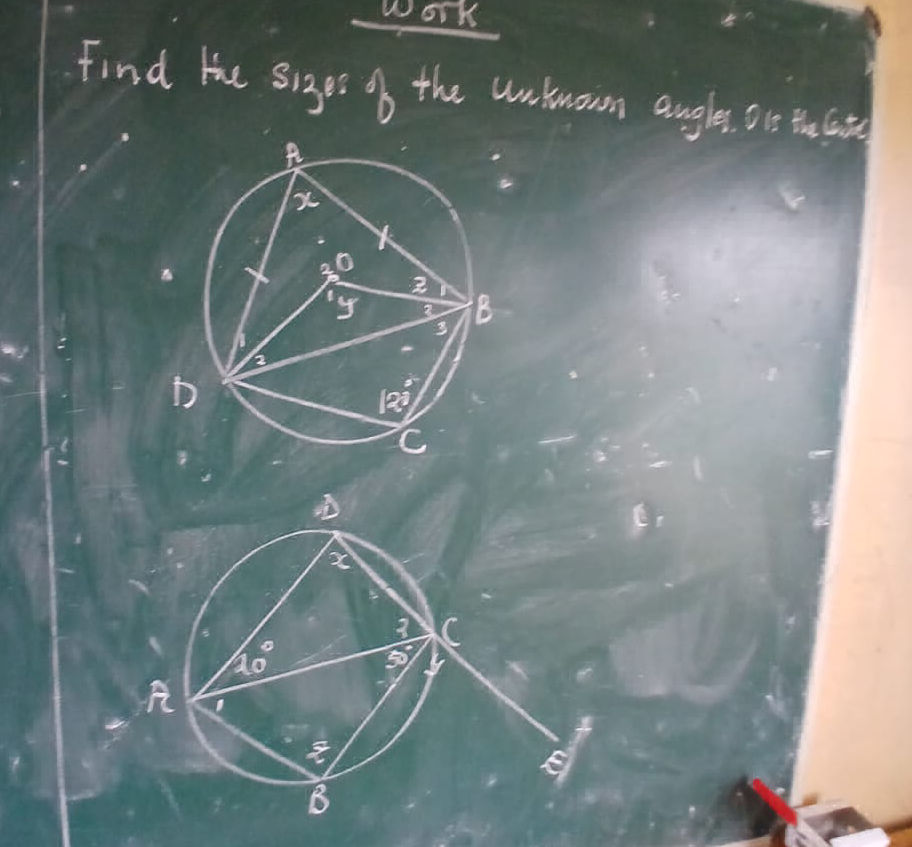 Work
Find the sizes of the unknown angles. O is the Centre
A
x
2 O
1 y
2 1
2
3
B
1
2
D
120°
C
D
x
2
C
20°
50°
y
A
1
z
B
E